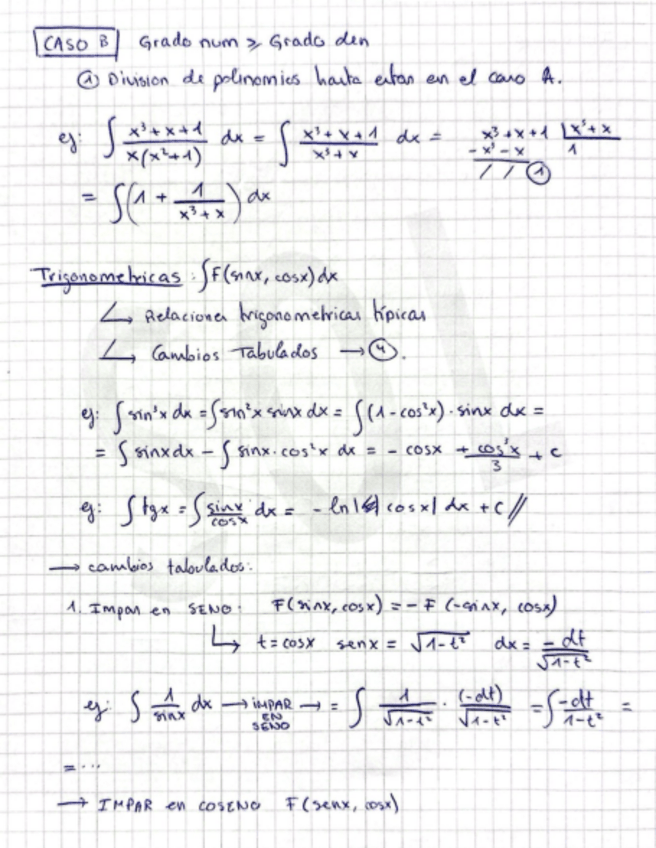 CASO B Grado num ≥ Grado den
① Division de polinomios hasta estar en el caso A.
ej: ∫ (x³+x+1)/(x(x²+1)) dx = ∫ (x³+x+1)/(x³+x) dx = x³+x+1 | x³+x
-x³-x 1
/ / ①
= ∫(1 + 1/(x³+x)) dx
Trigonometricas: ∫F(sinx, cosx)dx
↳ Relaciones trigonometricas típicas
↳ Cambios Tabulados → ④.
ej: ∫ sin³x dx = ∫sin²x sinx dx = ∫(1-cos²x)·sinx dx =
= ∫ sinxdx - ∫ sinx·cos²x dx = - cosx + cos³x/3 + c
ej: ∫ tgx = ∫ sinx/cosx dx = - ln| cosx| dx + c //
→ cambios tabulados:
1. Impar en SENO: F(sinx, cosx) = - F (-sinx, cosx)
↳ t = cosx senx = √(1-t²) dx = -dt/√(1-t²)
ej: ∫ 1/sinx dx → IMPAR EN SENO → = ∫ 1/√(1-t²) · (-dt)/√(1-t²) = ∫ -dt/(1-t²) =
= ...
→ IMPAR en COSENO F(senx, cosx)